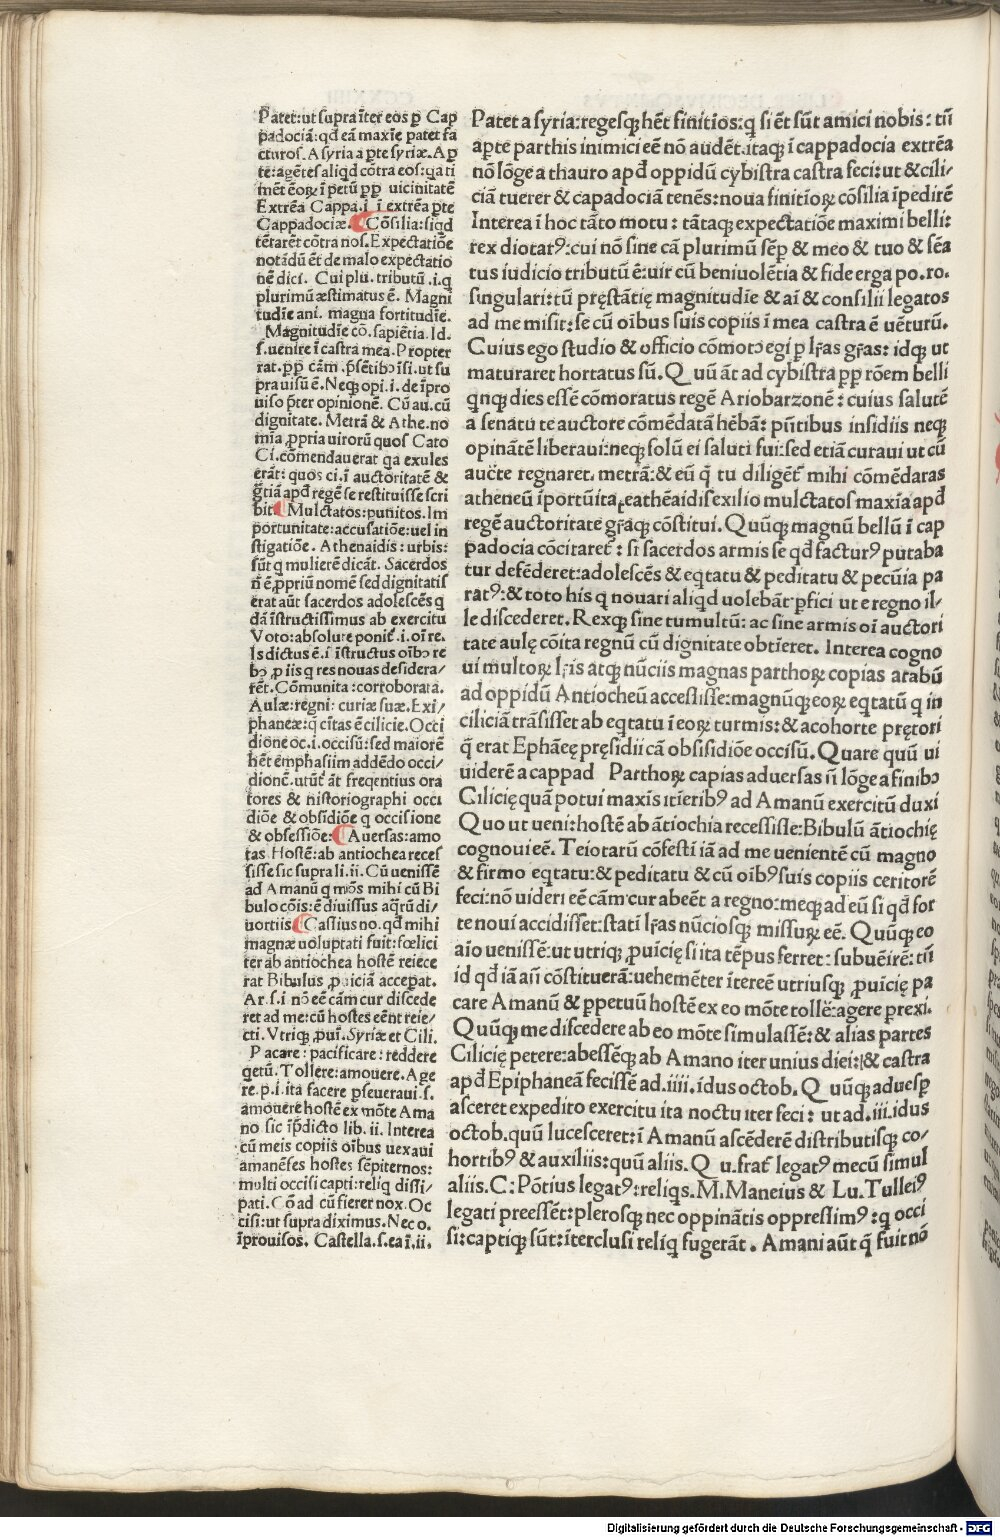 Patet:ut supra īter eos ꝑ Cap
padociā:qđ eā maxīe patet fa
cturos. A syria a ꝑte syriæ. A ꝑ
te:agētes aliqd cōtra eos:qa ti
mēt eoꝝ ī petū ꝓp uicinitatē
Extrēa Cappa.i ī extrēa ꝑte
Cappadociæ. Cōsilia:siqd
tētarēt cōtra nos. Expectatiōe
notādū ēt de malo expectatio
nē dici. Cui plu.tributū.i.q
plurimū æstimatus ē. Magni
tudīe ani. magna fortitudīe.
Magnitudīe cō.sapiētia. Id.
s.uenire ī castra mea. Propter
rat.ꝓp cām. p̄sētibꝰ īsi.ut su
pra uisū ē. Neqꝫ opi.i.de īpro
uiso p̄ter opinionē. Cū au.cū
dignitate. Metrā & Athe.no
mīa ꝓpria uirorū quos Cato
Ci.cōmendauerat qa exules
erāt: quos ci.ī auctoritatē &
gr̄tiā apđ regē se restituisse scri
bit Mulctatos:punitos. Im
portunitate:accusatiōe:uel in
stigatiōe. Athenaidis:urbis:
sūt q mulierē dicāt. Sacerdos
n̄ ē ꝓpriū nomē sed dignitatis
erat aūt sacerdos adolescēs q
dā īstructissimus ab exercitu
Voto:absolute ponit̄.i.oī re.
Is dictus ē.i īstructus oībꝰ re
bꝰ ꝓ iis q res nouas desidera/
rēt. Cōmunita:corroborata.
Aulæ:regni: curiæ suæ. Exi/
phaneæ:q̄ cītas ē cilicie. Occi
dione oc.i.occisū:sed maiorē
hēt emphasiim addēdo occi/
dionē.utūt̄ āt freqentius ora
tores & historiographi occi
diōe & obsidiōe q occisione
& obsessiōe: Auersas:amo
tas Hostē:ab antiochea reces
sisse sic supra li.ii. Cū uenissē
ad Amanū q mōs mihi cū Bi
bulo cōis:ē diuissus aq̄rū di/
uortiis Cassius no.qđ mihi
magnæ uoluptati fuit:fœlici
ter ab antiochea hostē reiece
rat Bibulus ꝓuiciā acceꝑat.
Ar.s.i nō eē cām cur discede
ret ad me:cū hostes eēnt reie/
cti. Vtriqꝫ ꝓui. Syriæ et Cili.
Pacare:pacificare:reddere
qetū. Tollere:amouere. Age
re.p.i.ita facere ꝑseueraui.s.
amouere hostē ex mōte Ama
no sic īp̄dicto lib.ii. Interea
cū meis copiis oībus uexaui
amanēses hostes sēpiternos:
multi occisi capti:reliq dissi/
pati. Cō ad cū fierer nox. Oc
cisi:ut supra diximus. Nec o.
īprouisos. Castella.s.ea ī.ii.
Patet a syria:regesqꝫ hēt finitios:q si ēt sūt amici nobis:tū
aꝑte parthis inimici eē nō audēt.itaqꝫ ī cappadocia extrēa
nō lōge a thauro apđ oppidū cybistra castra feci:ut & cili/
ciā tuerer & capadociā tenēs:noua finitioꝝ cōsilia īpedirē
Interea ī hoc tāto motu:tātaqꝫ expectatiōe maximi belli:
rex diotatꝰ:cui nō sine cā plurimū sēꝑ & meo & tuo & sēa
tus iudicio tributū ē:uir cū beniuolētia & fide erga po.ro.
singulari:tū pręstātię magnitudīe & aī & consilii legatos
ad me misit:se cū oībus suis copiis ī mea castra ē uēturū.
Cuius ego studio & officio cōmotꝰ egi ꝑ lr̄as gr̄as:idqꝫ ut
maturaret hortatus sū. Quū āt ad cybistra ꝓp rōem belli
qnqꝫ dies essē cōmoratus regē Ariobarzonē:cuius salutē
a senatu te auctore cōmēdatā hēbā:pn̄tibus insidiis neqꝫ
opinātē liberaui:neqꝫ solū ei saluti fui:sed etiā curaui ut cū
aucēte regnaret.metrā:& eū q̄ tu diligēt̄ mihi cōmēdaras
atheneū īportūitate athēaidis exilio mulctatos maxīa apđ
regē auctoritate gr̄aqꝫ cōstitui. Quūqꝫ magnū bellū ī cap
padocia cōcitaret̄:si sacerdos armis se qđ facturꝰ putaba
tur defēderet:adolescēs & eqtatu & peditatu & pecūia pa
ratꝰ:& toto his q nouari aliqd uolebāt ꝑfici ut e regno il/
le discederet. Rexqꝫ sine tumultū:ac sine armis oī auctori
tate aulę cōita regnū cū dignitate obtīeret. Interea cogno
ui multoꝝ lr̄is atqꝫ nūciis magnas parthoꝝ copias arabū
ad oppidū Antiocheū accessisse:magnūqꝫ eoꝝ eqtatū q in
ciliciā trāsisset ab eqtatu ī eoꝝ turmis:& a cohorte prętori
q̄ erat Ephāeę pręsidii cā obsisidiōe occisū. Quare quū ui
uiderē a cappad Parthoꝝ capias aduersas n̄ lōge a finibꝰ
Cilicię quā potui maxīs itīeribꝰ ad Amanū exercitū duxi
Quo ut ueni:hostē ab ātiochia recessisse:Bibulū ātiochię
cognoui eē. Teiotarū cōfesti iā ad me uenientē cū magno
& firmo eqtatu:& peditatu & cū oībꝰ suis copiis certiorē
feci:nō uideri eē cām cur abeēt a regno:meqꝫ ad eū si qđ for
te noui accidisset:stati lr̄as nūciosqꝫ missuꝝ eē. Quūqꝫ eo
aīo uenissē:ut utriqꝫ ꝓuicię si ita tēpus ferret:subuēirē:tū
id qđ iā an̄ cōstituerā:uehemēter ītereē utriusqꝫ ꝓuicię pa
care Amanū & ꝑpetuū hostē ex eo mōte tollē:agere ꝑrexi.
Quūqꝫ me discedere ab eo mōte simulassē:& alias partes
Cilicię petere:abessēqꝫ ab Amano iter unius diei:& castra
apđ Epiphaneā fecissē ad.iiii.idus octob. Quūqꝫ aduesꝑ
asceret expedito exercitu ita noctu iter feci:ut ad.iii.idus
octob.quū lucesceret:ī Amanū ascēderē distributisqꝫ co/
hortibꝰ & auxiliis:quū aliis. Qu.frat̄ legatꝰ mecū simul
aliis. C:Pōtius legatꝰ:reliqs. M. Maneius & Lu. Tulleiꝰ
legati preessēt:plerosqꝫ nec oppinātis oppressimꝰ:q occi
si:captiqꝫ sūt:īterclusi reliq fugerāt. Amani aūt q̄ fuit nō
Digitalisierung gefördert durch die Deutsche Forschungsgemeinschaft - DFG